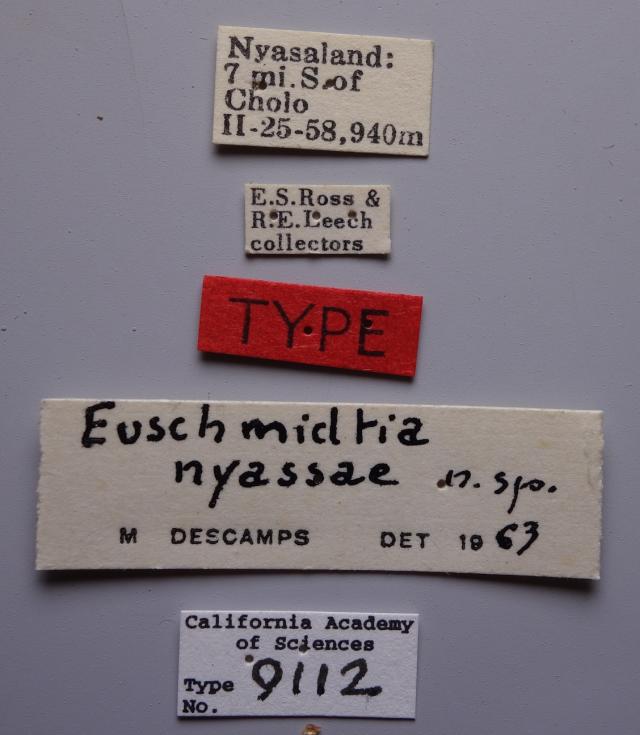 Nyasaland:
7 mi. S. of
Cholo
II-25-58,940m
E.S.Ross &
R.E.Leech
collectors
TYPE
Euschmidtia
nyassae n. sp.
M DESCAMPS DET 1963
California Academy
of Sciences
Type
No. 9112